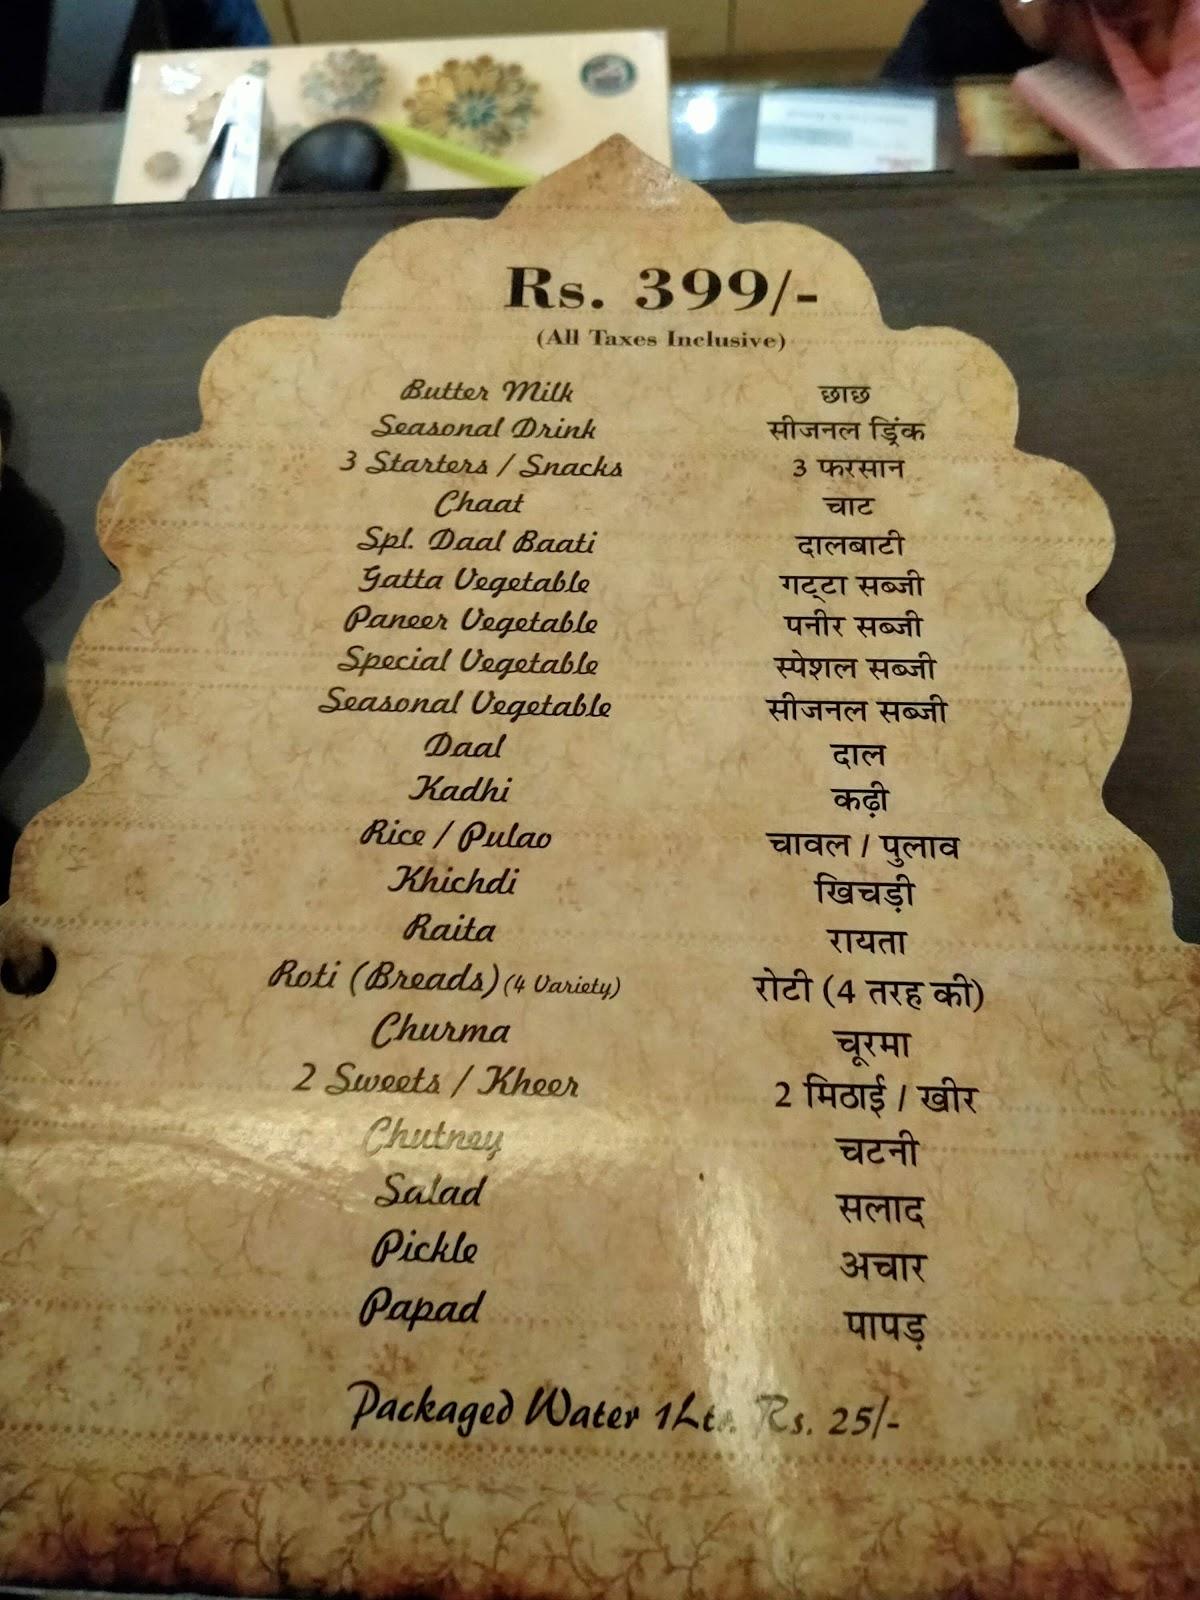 Rs. 399/-
(All Taxes Inclusive)
Butter Milk छाछ
Seasonal Drink सीजनल ड्रिंक
3 Starters / Snacks 3 फरसान
Chaat चाट
Spl. Daal Baati दालबाटी
Gatta Vegetable गट्टा सब्जी
Paneer Vegetable पनीर सब्जी
Special Vegetable स्पेशल सब्जी
Seasonal Vegetable सीजनल सब्जी
Daal दाल
Kadhi कढ़ी
Rice / Pulao चावल / पुलाव
Khichdi खिचड़ी
Raita रायता
Roti (Breads) (4 Variety) रोटी (4 तरह की)
Churma चूरमा
2 Sweets / Kheer 2 मिठाई / खीर
Chutney चटनी
Salad सलाद
Pickle अचार
Papad पापड़
Packaged Water 1Ltr. Rs. 25/-